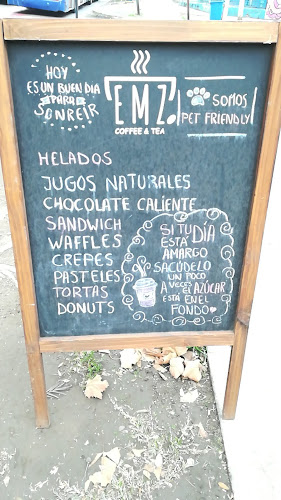 HOY
ES UN BUEN DIA
PARA
SONREIR
EMZ.
COFFEE & TEA
SOMOS
PET FRIENDLY
HELADOS
JUGOS NATURALES
CHOCOLATE CALIENTE
SANDWICH
WAFFLES
CREPES
PASTELES
TORTAS
DONUTS
SI TU DÍA
ESTÁ
AMARGO
SACÚDELO
UN POCO
A VECES EL AZÚCAR
ESTÁ EN EL
FONDO